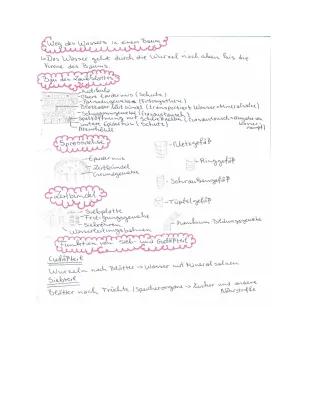 Weg des Wassers in einem Baum
Das Wasser geht durch die Wurzel nach oben bis die
Krone des Baums.
Bau des Laubblattes
Kutikula
Obere Epidermis (Schutz)
Palisadengewebe (Fotosynthese)
Blattader (Leitbündel) (transportiert Wasser + Mineralsalze)
Schwammgewebe (Gasaustausch)
Spaltöffnung mit Schließzelle (Gasaustausch
untere Epidermis (Schutz)
Atemhöhle
Sprossachse
Epidermis
Leitbündel
Grundgewebe
Netzgefäß
Ringgefäß
Schraubengefäß
Tüpfelgefäß
Leitbündel
Siebplatte
Festigungsgewebe
Siebröhren
Wasserleitungsbahnen
Kambium Bildungsgewebe
Funktion von Sieb- und Gefäßteil
Gefäßteil
Wurzeln nach Blätter → Wasser mit Mineralsalzen
Siebteil
Blätter nach Früchte / Speicherorgane → Zucker und andere
Nährstoffe